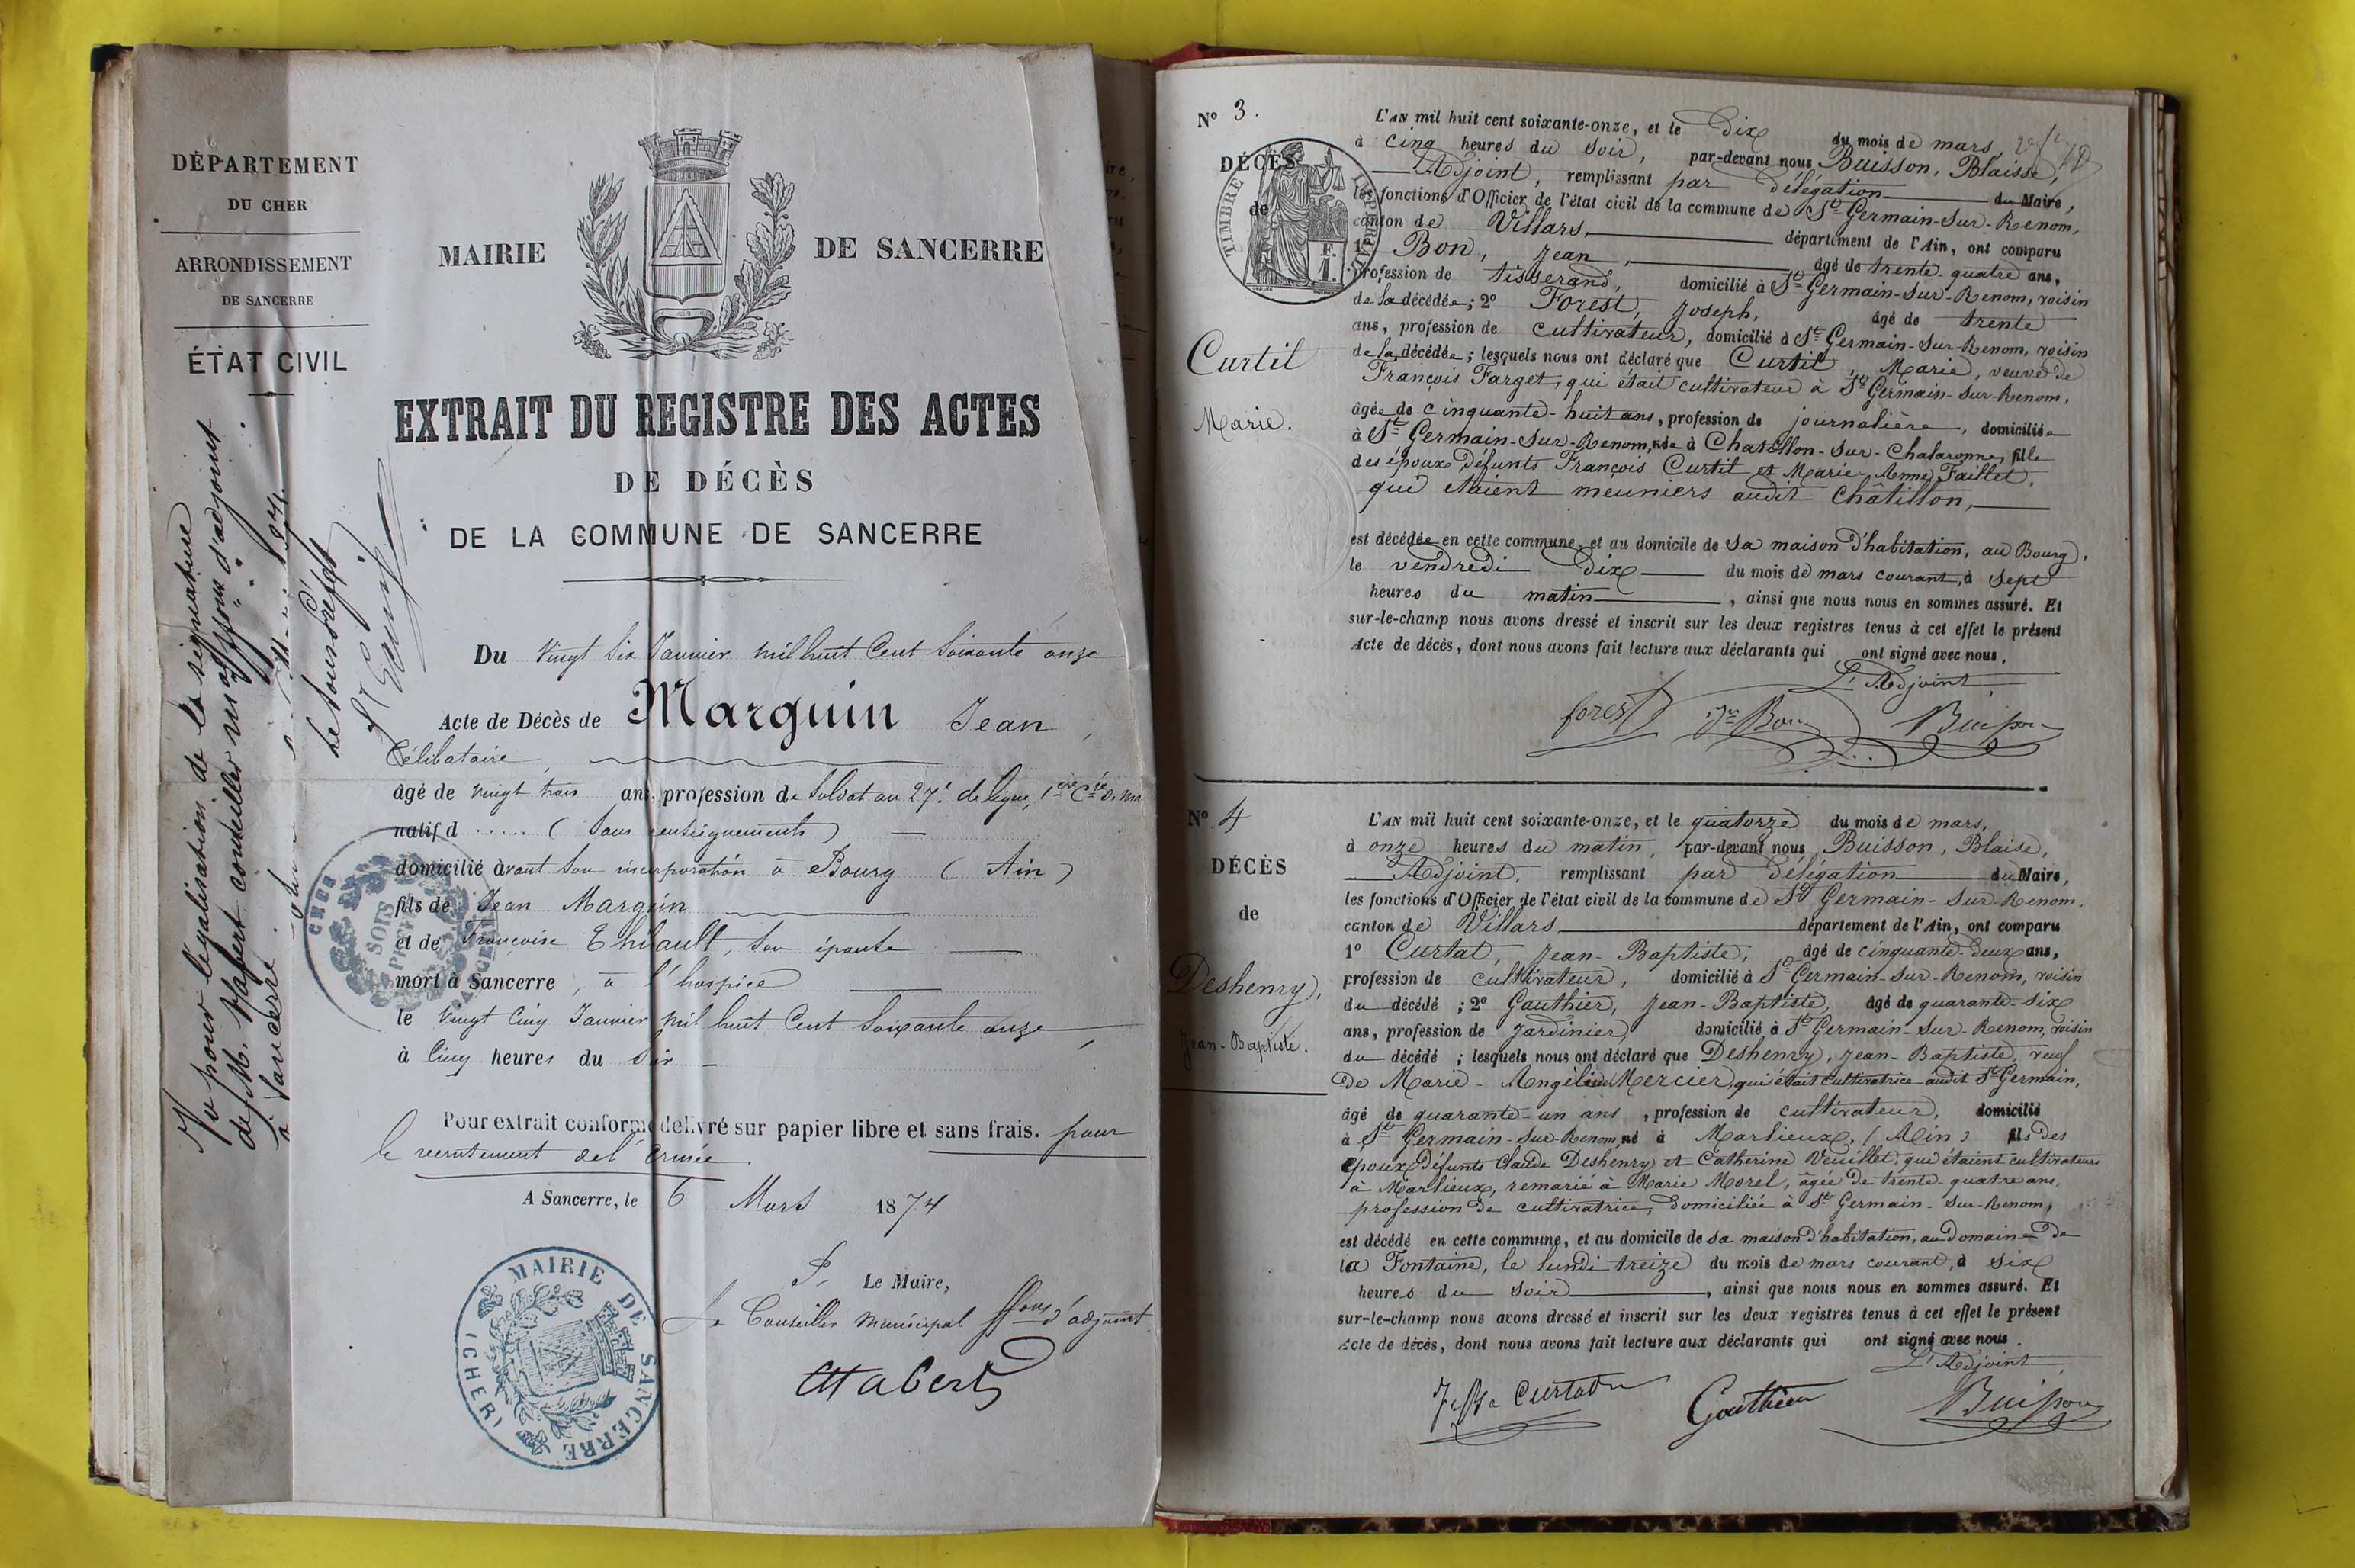 DÉPARTEMENT
DU CHER
ARRONDISSEMENT
DE SANCERRE
ÉTAT CIVIL
MAIRIE DE SANCERRE
EXTRAIT DU REGISTRE DES ACTES
DE DÉCÈS
DE LA COMMUNE DE SANCERRE
Du vingt six Janvier mil huit Cent Soixante onze
Acte de Décès de Marguin Jean,
Célibataire,
âgé de vingt trois ans, profession de Soldat au 27e de ligne, 1ère Cie
natif d ..... (Sans renseignements)
domicilié avant son incorporation à Bourg (Ain)
fils de Jean Marguin
et de Françoise Thibault, son épouse
mort à Sancerre, à l'hospice
le vingt Cinq Janvier mil huit Cent Soixante onze,
à Cinq heures du soir
Pour extrait conforme délivré sur papier libre et sans frais. pour
le recrutement de l'armée.
A Sancerre, le 6 Mars 1874
P. Le Maire,
Le Conseiller municipal ffons d'adjoint.
Habert
MAIRIE DE SANCERRE
(CHER)
Vu pour légalisation de la signature
de M. Habert conseiller mal ffons d'adjoint
à Sancerre
Le Sous Préfet
CHER
SOUS
N° 3.
DÉCÈS
de
TIMBRE
Curtil
Marie.
L'AN mil huit cent soixante-onze, et le Dix du mois de mars,
à cinq heures du soir, par-devant nous Buisson, Blaise,
Adjoint, remplissant par délégation du Maire,
les fonctions d'Officier de l'état civil de la commune de St Germain-sur-Renom,
canton de Villars, département de l'Ain, ont comparu
1° Bon, Jean, âgé de trente-quatre ans,
profession de tisserand, domicilié à St Germain-sur-Renom, voisin
de la décédée; 2° Forest, Joseph, âgé de trente
ans, profession de cultivateur, domicilié à St Germain-sur-Renom, voisin
de la décédée; lesquels nous ont déclaré que Curtil, Marie, veuve de
François Farget, qui était cultivateur à St Germain-sur-Renom,
âgée de cinquante-huit ans, profession de journalière, domiciliée
à St Germain-sur-Renom, née à Chatillon-sur-Chalaronne, fille
des époux défunts François Curtil et Marie-Anne Faillet,
qui étaient meuniers audit Châtillon,
est décédée en cette commune, et au domicile de sa maison d'habitation, au Bourg,
le vendredi dix du mois de mars courant, à sept
heures du matin, ainsi que nous nous en sommes assuré. Et
sur-le-champ nous avons dressé et inscrit sur les deux registres tenus à cet effet le présent
Acte de décès, dont nous avons fait lecture aux déclarants qui ont signé avec nous.
L'Adjoint,
forest Jn Bon Buisson
N° 4
DÉCÈS
de
Deshenry,
Jean-Baptiste.
L'AN mil huit cent soixante-onze, et le quatorze du mois de mars,
à onze heures du matin, par-devant nous Buisson, Blaise,
Adjoint, remplissant par délégation du Maire,
les fonctions d'Officier de l'état civil de la commune de St Germain-sur-Renom,
canton de Villars, département de l'Ain, ont comparu
1° Curtat, Jean-Baptiste, âgé de cinquante-deux ans,
profession de cultivateur, domicilié à St Germain-sur-Renom, voisin
du décédé; 2° Gauthier, Jean-Baptiste, âgé de quarante-six
ans, profession de jardinier, domicilié à St Germain-sur-Renom, voisin
du décédé; lesquels nous ont déclaré que Deshenry, Jean-Baptiste, veuf
de Marie-Angèline Mercier, qui était cultivatrice audit St Germain,
âgé de quarante-un ans, profession de cultivateur, domicilié
à St Germain-sur-Renom, né à Marlieux, (Ain) fils des
époux défunts Claude Deshenry et Catherine Veuillet, qui étaient cultivateurs
à Marlieux, remarié à Marie Morel, âgée de trente-quatre ans,
profession de cultivatrice, domiciliée à St Germain-sur-Renom,
est décédé en cette commune, et au domicile de sa maison d'habitation, au Domaine de
la Fontaine, le lundi treize du mois de mars courant, à six
heures du soir, ainsi que nous nous en sommes assuré. Et
sur-le-champ nous avons dressé et inscrit sur les deux registres tenus à cet effet le présent
Acte de décès, dont nous avons fait lecture aux déclarants qui ont signé avec nous.
L'Adjoint,
Curtat Gauthier Buisson